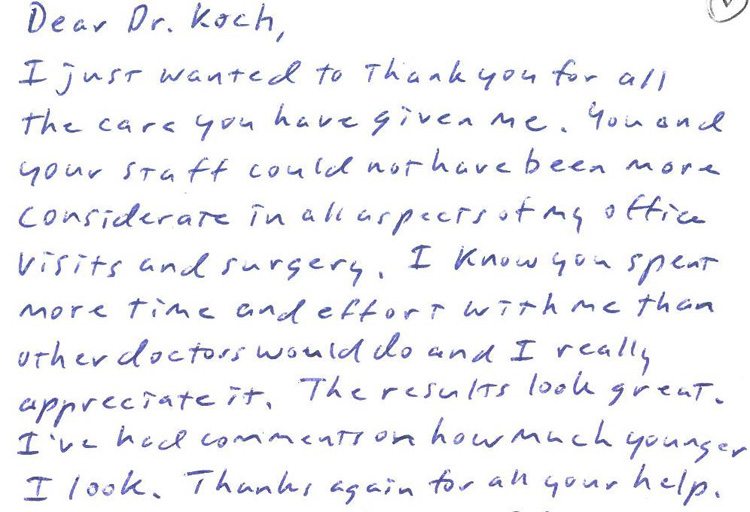 Dear Dr. Koch,
I just wanted to thank you for all
the care you have given me. You and
your staff could not have been more
considerate in all aspects of my office
visits and surgery. I know you spent
more time and effort with me than
other doctors would do and I really
appreciate it. The results look great.
I've had comments on how much younger
I look. Thanks again for all your help.